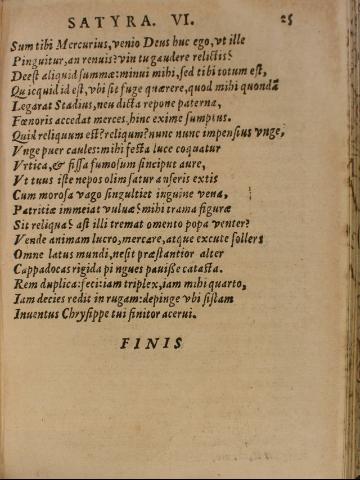 SATYRA. VI. 25
Sum tibi Mercurius, venio Deus huc ego, vt ille
Pinguitur, an renuis? vin tu gaudere relictis?
Deest aliquid summæ: minui mihi, sed tibi totum est,
Quicquid id est, vbi sit fuge quærere, quod mihi quondã
Legarat Stadius, neu dicta repone paterna,
Fœnoris accedat merces, hinc exime sumptus.
Quid reliquum est? reliquum? nunc nunc impensius vnge,
Vnge puer caules: mihi festa luce coquatur
Vrtica, & fissa fumosum sinciput aure,
Vt tuus iste nepos olim satur anseris extis
Cum morosa vago singultiet inguine vena,
Patritiæ immeiat vuluæ? mihi trama figuræ
Sit reliqua? ast illi tremat omento popa venter?
Vende animam lucro, mercare, atque excute sollers
Omne latus mundi, ne sit præstantior alter
Cappadocas rigida pingues pauisse catasta.
Rem duplica: feci: iam triplex, iam mihi quarto,
Iam decies redit in rugam: depinge vbi sistam
Inuentus Chrysippe tui finitor acerui.
FINIS